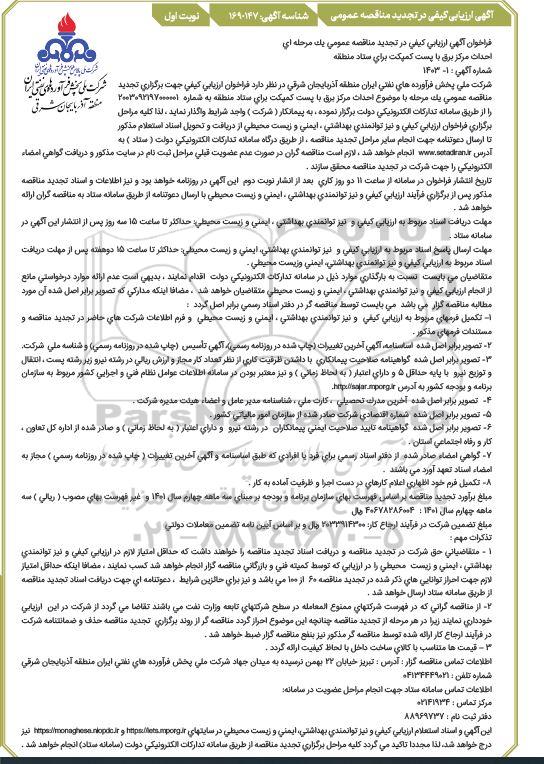 آگهی ارزیابی کیفی در تجدید مناقصه عمومی
شناسه آگهی: ۱۶۹۰۱۴۷
نوبت اول
شركت ملي پخش فرآورده‌هاي نفتي ايران
منطقه آذربايجان شرقي
فراخوان آگهي ارزيابي كيفي در تجديد مناقصه عمومي يك مرحله اي
احداث مركز برق با پست كمپكت براي ستاد منطقه
شماره آگهي : ۱- ۱۴۰۳
شركت ملي پخش فرآورده هاي نفتي ايران منطقه آذربايجان شرقي در نظر دارد فراخوان ارزيابي كيفي جهت برگزاري تجديد
مناقصه عمومي يك مرحله با موضوع احداث مركز برق با پست كمپكت براي ستاد منطقه به شماره ۲۰۰۳۰۹۲۱۹۷۰۰۰۰۰۱
را از طريق سامانه تداركات الكترونيكي دولت برگزار نموده ، به پيمانكار ( شركت ) واجد شرايط واگذار نمايد ، لذا كليه مراحل
برگزاري فراخوان ارزيابي كيفي و نيز توانمندي بهداشتي ، ايمني و زيست محيطي از دريافت و تحويل اسناد استعلام مذكور
تا ارسال دعوتنامه جهت انجام ساير مراحل تجديد مناقصه ، از طريق درگاه سامانه تداركات الكترونيكي دولت ( ستاد ) به
آدرس www.setadiran.ir انجام خواهد شد ، لازم است مناقصه گران در صورت عدم عضويت قبلي مراحل ثبت نام در سايت مذكور و دريافت گواهي امضاء
الكترونيكي را جهت شركت در تجديد مناقصه محقق سازند .
تاريخ انتشار فراخوان در سامانه از ساعت ۱۱ دو روز كاري بعد از انشار نوبت دوم اين آگهي در روزنامه خواهد بود و نيز اطلاعات و اسناد تجديد مناقصه
مذكور پس از برگزاري فرآيند ارزيابي كيفي و نيز توانمندي بهداشتي ، ايمني و زيست محيطي با ارسال دعوتنامه از طريق سامانه ستاد به مناقصه گران ارائه
خواهد شد .
مهلت دريافت اسناد مربوط به ارزيابي كيفي و نيز توانمندي بهداشتي ، ايمني و زيست محيطي: حداكثر تا ساعت ۱۵ سه روز پس از انتشار اين آگهي در
سامانه ستاد .
مهلت ارسال پاسخ اسناد مربوط به ارزيابي كيفي و نيز توانمندي بهداشتي، ايمني و زيست محيطي: حداكثر تا ساعت ۱۵ دوهفته پس از مهلت دريافت
اسناد مربوط به ارزيابي كيفي و نيز توانمندي بهداشتي، ايمني وزيست محيطي .
متقاضيان مي بايست نسبت به بارگذاري موارد ذيل در سامانه تداركات الكترونيكي دولت اقدام نمايند ، بديهي است عدم ارائه موارد درخواستي مانع
از انجام ارزيابي كيفي و نيز توانمندي بهداشتي ، ايمني و زيست محيطي متقاضيان خواهد شد . مضافا اينكه مداركي كه تصوير برابر اصل شده آن مورد
مطالبه مناقصه گزار مي باشد مي بايست توسط مناقصه گر در دفتر اسناد رسمي برابر اصل گردد :
۱- تكميل فرمهاي مربوط به ارزيابي كيفي و نيز توانمندي بهداشتي ، ايمني و زيست محيطي و فرم اطلاعات شركت هاي حاضر در تجديد مناقصه و
مستندات فرمهاي مذكور .
۲- تصوير برابر اصل شده اساسنامه، آگهي آخرين تغييرات (چاپ شده در روزنامه رسمي)، آگهي تأسيس (چاپ شده در روزنامه رسمي) و شناسه ملي شركت.
۳- تصوير برابر اصل شده گواهينامه صلاحيت پيمانكاري با داشتن ظرفيت كاري از نظر تعداد كار مجاز و ارزش ريالي در رشته نيرو زير رشته پست ، انتقال
و توزيع نيرو با پايه حداقل ۵ و داراي اعتبار ( به لحاظ زماني ) و نيز معتبر بودن در سامانه اطلاعات عوامل نظام فني و اجرايي كشور مربوط به سازمان
برنامه و بودجه كشور به آدرس http://sajar.mporg.ir.
۴- تصوير برابر اصل شده آخرين مدرك تحصيلي ، كارت ملي ، شناسنامه مدير عامل و اعضاء هيئت مديره شركت .
۵- تصوير برابر اصل شده شماره اقتصادي شركت صادر شده از سازمان امور مالياتي كشور .
۶- تصوير برابر اصل شده گواهينامه تاييد صلاحيت ايمني پيمانكاران در رشته نيرو و داراي اعتبار ( به لحاظ زماني ) و صادر شده از اداره كل تعاون ،
كار و رفاه اجتماعي استان .
۷- گواهي امضاء صادر شده از دفتر اسناد رسمي براي فرد يا افرادي كه طبق اساسنامه و آگهي آخرين تغييرات ( چاپ شده در روزنامه رسمي ) مجاز به
امضاء اسناد تعهد آورد مي باشند .
۸- تكميل فرم خود اظهاري اعلام كارهاي در دست اجرا و ظرفيت آماده به كار .
مبلغ برآورد تجديد مناقصه بر اساس فهرست بهاي سازمان برنامه و بودجه بر مبناي سه ماهه چهارم سال ۱۴۰۱ و غير فهرست بهاي مصوب ( ريالي ) سه
ماهه چهارم سال ۱۴۰۱ : ۴۰۶۷۸۲۸۶۰۰۴ ريال
مبلغ تضمين شركت در فرآيند ارجاع كار: ۲۰۳۳۹۱۴۳۰۰ ريال و بر اساس آيين نامه تضمين معاملات دولتي
تذكرات مهم :
۱ - متقاضياني حق شركت در تجديد مناقصه و دريافت اسناد تجديد مناقصه را خواهند داشت كه حداقل امتياز لازم در ارزيابي كيفي و نيز توانمندي
بهداشتي ، ايمني و زيست محيطي را در ارزيابي كه توسط كميته فني و بازرگاني مناقصه گزار انجام خواهد شد كسب نمايند ، مضافا اينكه حداقل امتياز
لازم جهت احراز توانايي هاي ذكر شده در تجديد مناقصه ۶۰ از ۱۰۰ مي باشد و نيز براي حائزين شرايط ، دعوتنامه اي جهت دريافت اسناد تجديد مناقصه
از طريق سامانه ستاد ارسال خواهد شد .
۲- از مناقصه گراني كه در فهرست شركتهاي ممنوع المعامله در سطح شركتهاي تابعه وزارت نفت مي باشند تقاضا مي گردد از شركت در اين ارزيابي
خودداري نمايند زيرا در هر مرحله از تجديد مناقصه چنانچه اين موضوع احراز گردد مناقصه گر از روند برگزاري تجديد مناقصه حذف و ضمانتنامه شركت
در فرآيند ارجاع كار ارائه شده توسط مناقصه گر مذكور نيز بنفع مناقصه گزار ضبط خواهد شد .
۳ – قيمت ها متناسب با كالاي ساخت داخل با لحاظ كيفيت ارائه گردد .
اطلاعات تماس مناقصه گزار : آدرس : تبريز خيابان ۲۲ بهمن نرسيده به ميدان جهاد شركت ملي پخش فرآورده هاي نفتي ايران منطقه آذربايجان شرقي
شماره تلفن : ۰۴۱۳۴۴۴۹۰۲۱
اطلاعات تماس سامانه ستاد جهت انجام مراحل عضويت در سامانه:
مركز تماس : ۰۲۱۴۱۹۳۴
دفتر ثبت نام : ۸۸۹۶۹۷۳۷
اين آگهي و اسناد استعلام ارزيابي كيفي و نيز توانمندي بهداشتي، ايمني و زيست محيطي در سايتهاي https://iets.mporg.ir و https://monaghese.niopdc.ir نيز
درج خواهد شد، لذا مجددا تاكيد مي گردد كليه مراحل برگزاري تجديد مناقصه از طريق سامانه تداركات الكترونيكي دولت (سامانه ستاد) انجام خواهد شد .
۰۲۱-۸۸۳۴۹۶۷۰-۵